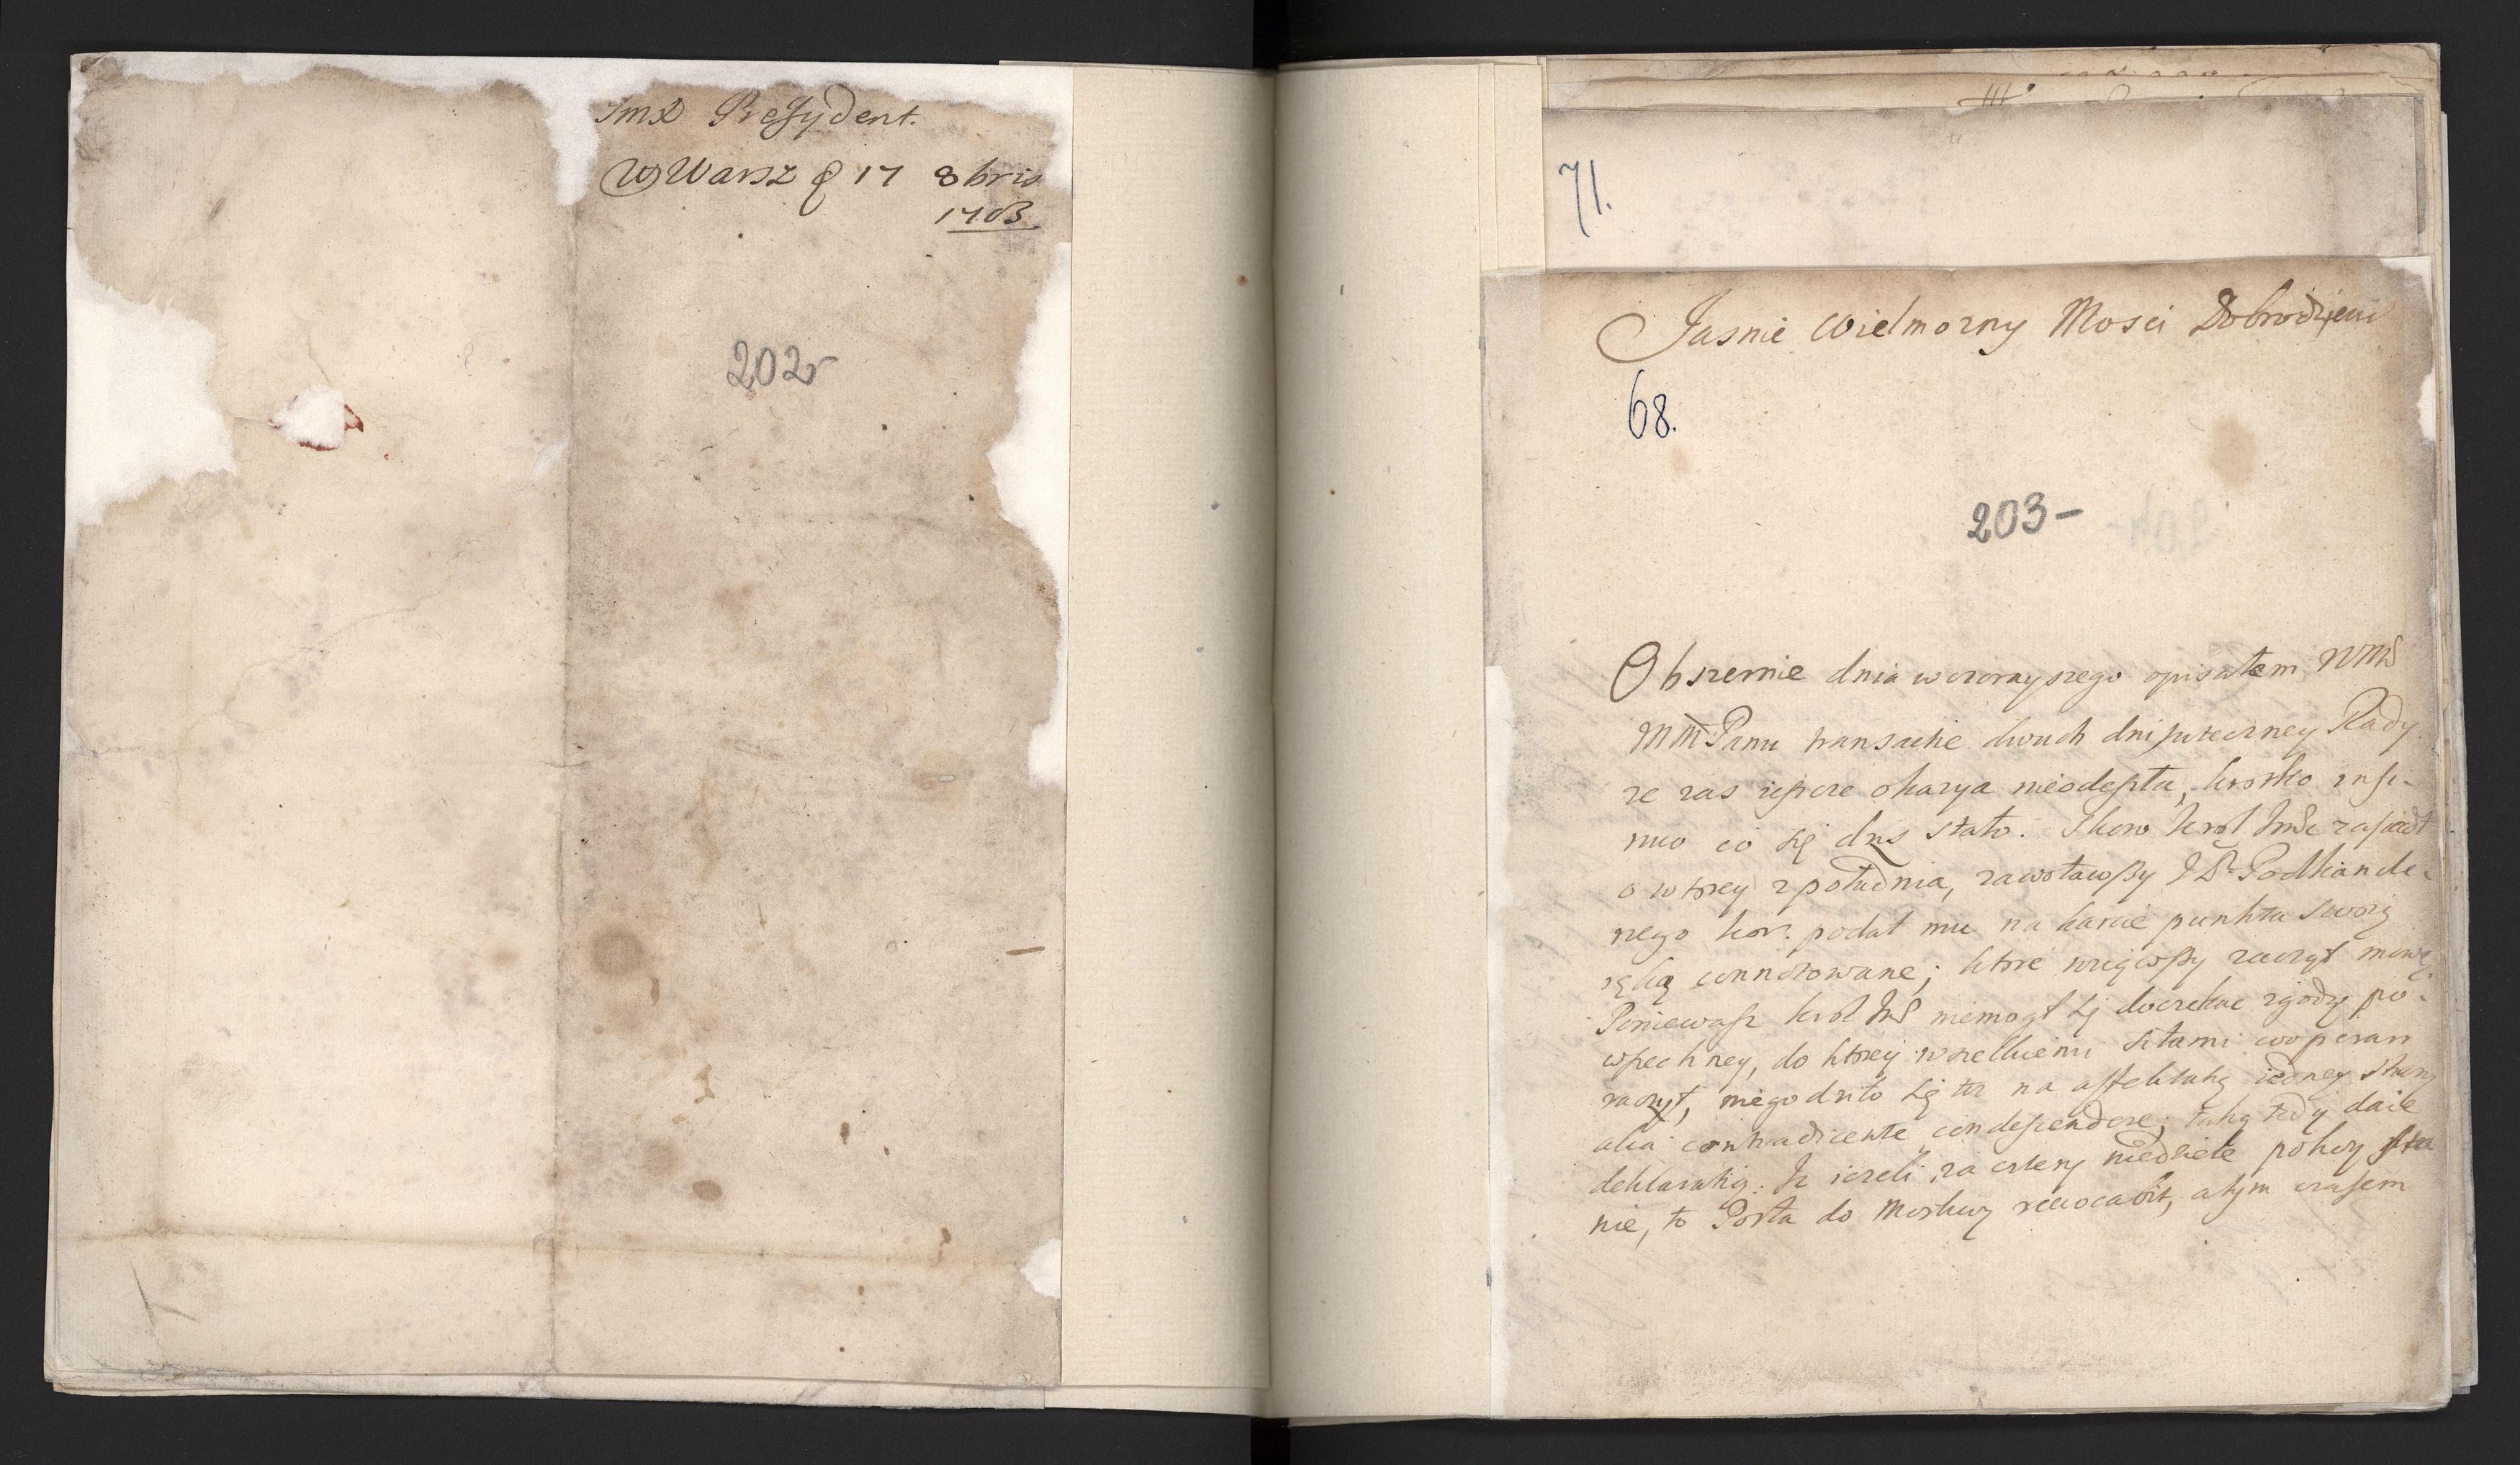 Jmx Prezydent.
W Warsz d 17 8bris
1703
202
71.
Jasnie Wielmozny Mosci Dobrodzieiu
68.
203-
Obszernie dnia wczorayszego opisałem WMP
MMPanu transactie dwuch dni Rady
ze zas ieszcze okazya nieodeszła, krotko insi-
nuo co się dzis stało. Skoro krol Jmsc zasiadł
o wtorey z południa, zawoławszy Podkancle-
rzego kor. podał mu na karcie punkta swoią
ręką connotowane; ktore wziąwszy zaczął mowę
Poniewasz krol niemogł się doczekac zgody po-
wszechney, do ktorey wszelkiemi siłami
raczył, niegodziło się tez na affektatią iedney strony
alia contradicente condescendere; taką tedy daie
deklaratią. Jz iezeli za cztery niedziele pokoy sta
nie, to Posła do Moskwy revocabit, a tym czasem